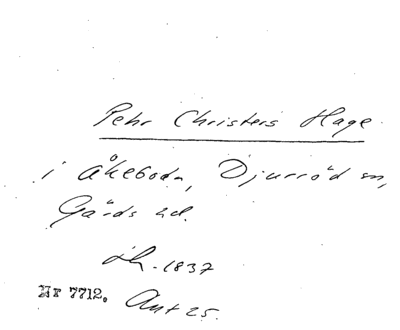 Pehr Christers Hage
i Åkeboda, Djurröd sn,
Gärds hd.
1837
Nr 7712. Ant 25.